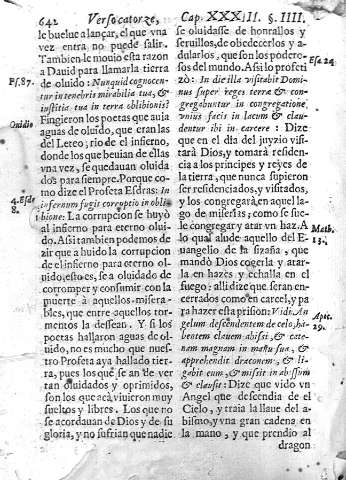 642 Verso catorze,
Cap. XXXIII. §. IIII.
le buelue a lançar, el que vna
vez entra no puede salir.
Tambien le mouio esta razon
a Dauid para llamarla tierra
de oluido: Nunquid cognocen-
tur in tenebris mirabilia tua, &
iustitia tua in terra obliuionis?
Fingieron los poetas que auia
aguas de oluido, que eran las
del Leteo, rio de el infierno,
donde los que beuian de ellas
vna vez, se quedauan oluida
dos para siempre. Porque co-
mo dize el Profeta Esdras: In
infernum fugit corruptio in obli-
bione: La corrupcion se huyò
al infierno para eterno olui-
do. Assi tambien podemos de
zir que a huido la corrupcion
de el infierno para eterno ol-
uido, esto es, se a oluidado de
corromper y consumir con la
muerte à aquellos misera-
bles, que entre aquellos tor-
mentos la dessean. Y si los
poetas hallaron aguas de ol-
uido, no es mucho que nues-
tro Profeta aya hallado tier-
ra, pues los que se an de ver
tan oluidados y oprimidos,
son los que acà viuieron muy
sueltos y libres. Los que no
se acordauan de Dios y de su
gloria, y no sufrian que nadie
Ps. 87.
Ouidio
4. Esd.
8.
se oluidasse de honrallos y
seruillos, de obedecerlos y a-
dularlos, que son los podero-
sos del mundo. Assi lo profeti
zò: In die illa visitabit Domi-
nus super reges terra & con-
gregabuntur in congregatione
vnius facis in lacum & clau-
dentur ibi in carcere: Dize
que en el dia del juyzio visi-
tarà Dios, y tomarà residenci-
a à los principes y reyes de
la tierra, que nunca supieron
ser residenciados, y visitados,
y los congregarà en aquel la-
go de miserias; como se sue-
le congregar y atar vn haz. A
lo qual alude aquello del E-
uangelio de la sizaña, que
mandò Dios cogerla y atar-
la en hazes y echalla en el
fuego: alli dize que seran en-
cerrados como en carcel, y pa
ra hazer esta prison: Vidi An-
gelum descendentem de celo, ha-
bentem clauem abissi, & cate-
nam magnam in manu sua, &
apprehendit draconem, & li-
gabit eum, & missit in abyssum
& clausit: Dize que vido vn
Angel que descendia de el
Cielo, y traia la llaue del a-
bismo, y vna gran cadena en
la mano, y que prendio al
dragon
Esa. 24.
Math.
13.
Apoc.
29.